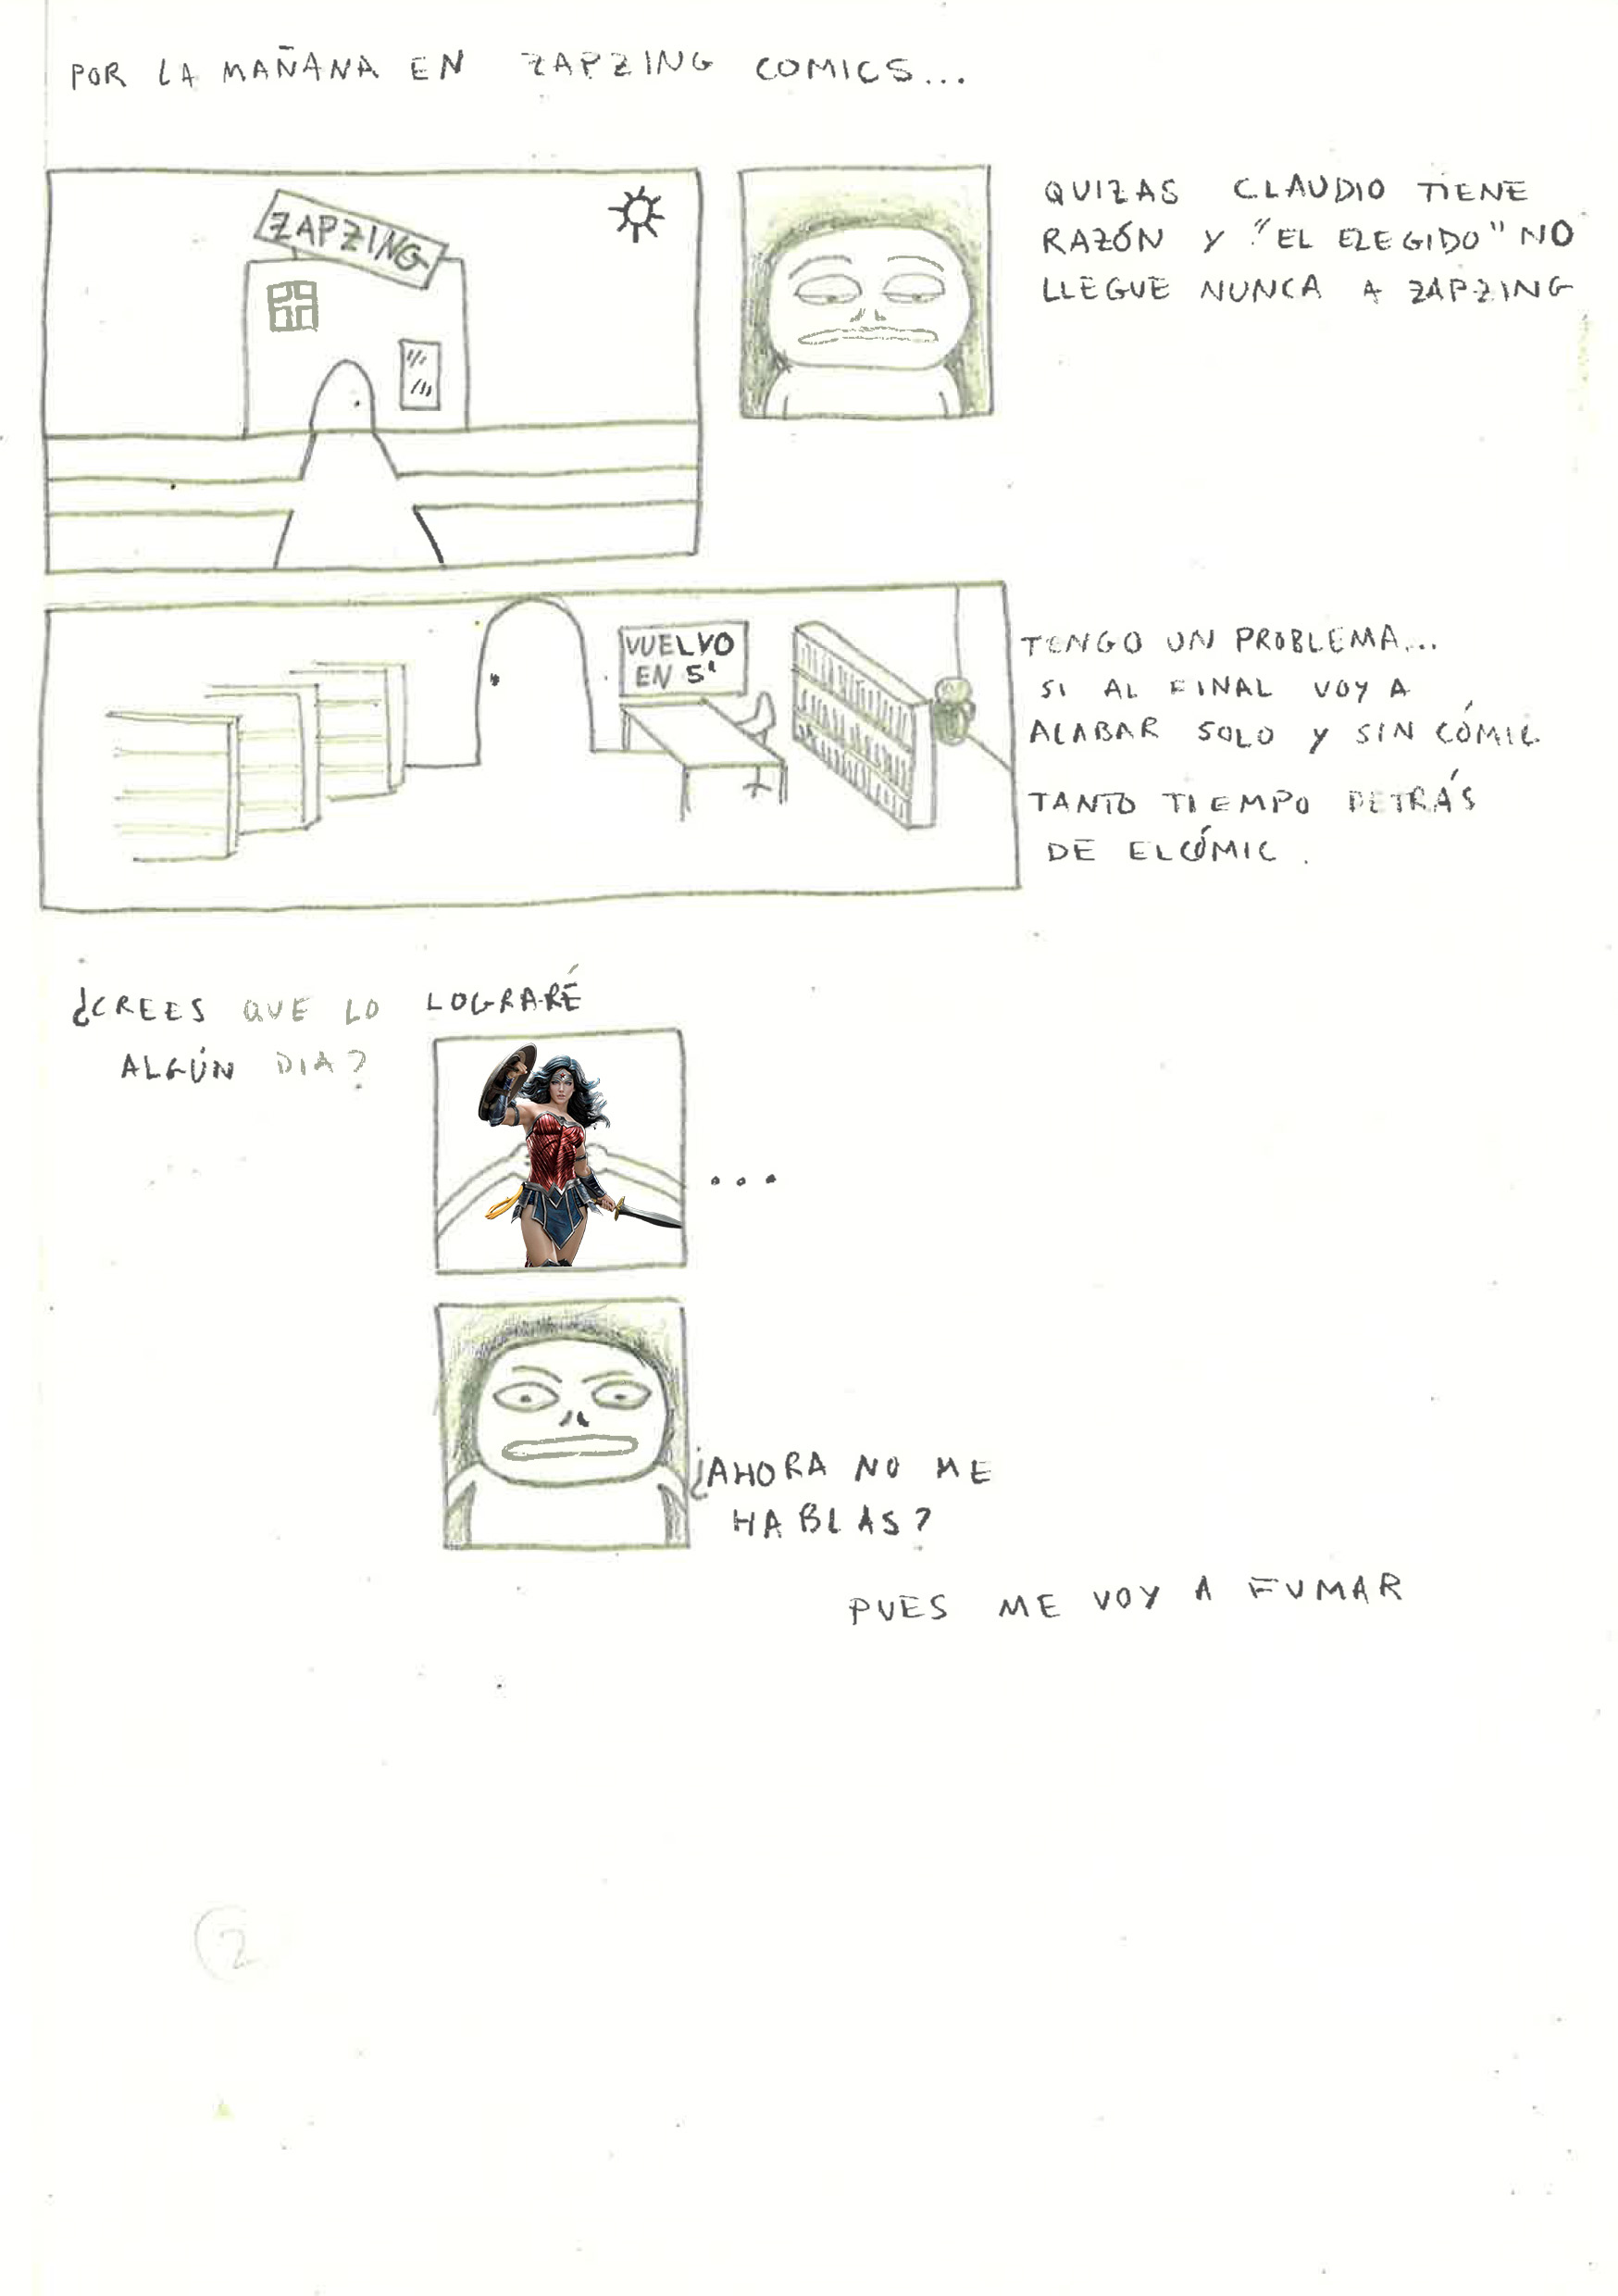 POR LA MAÑANA EN ZAPZING COMICS...
ZAPZING
QUIZAS CLAUDIO TIENE
RAZÓN Y "EL ELEGIDO" NO
LLEGUE NUNCA A ZAPZING
VUELVO
EN 5'
TENGO UN PROBLEMA...
SI AL FINAL VOY A
ACABAR SOLO Y SIN CÓMIC.
TANTO TIEMPO DETRÁS
DE EL CÓMIC.
¿CREES QUE LO LOGRARÉ
ALGÚN DIA?
...
¿AHORA NO ME
HABLAS?
PUES ME VOY A FUMAR
2